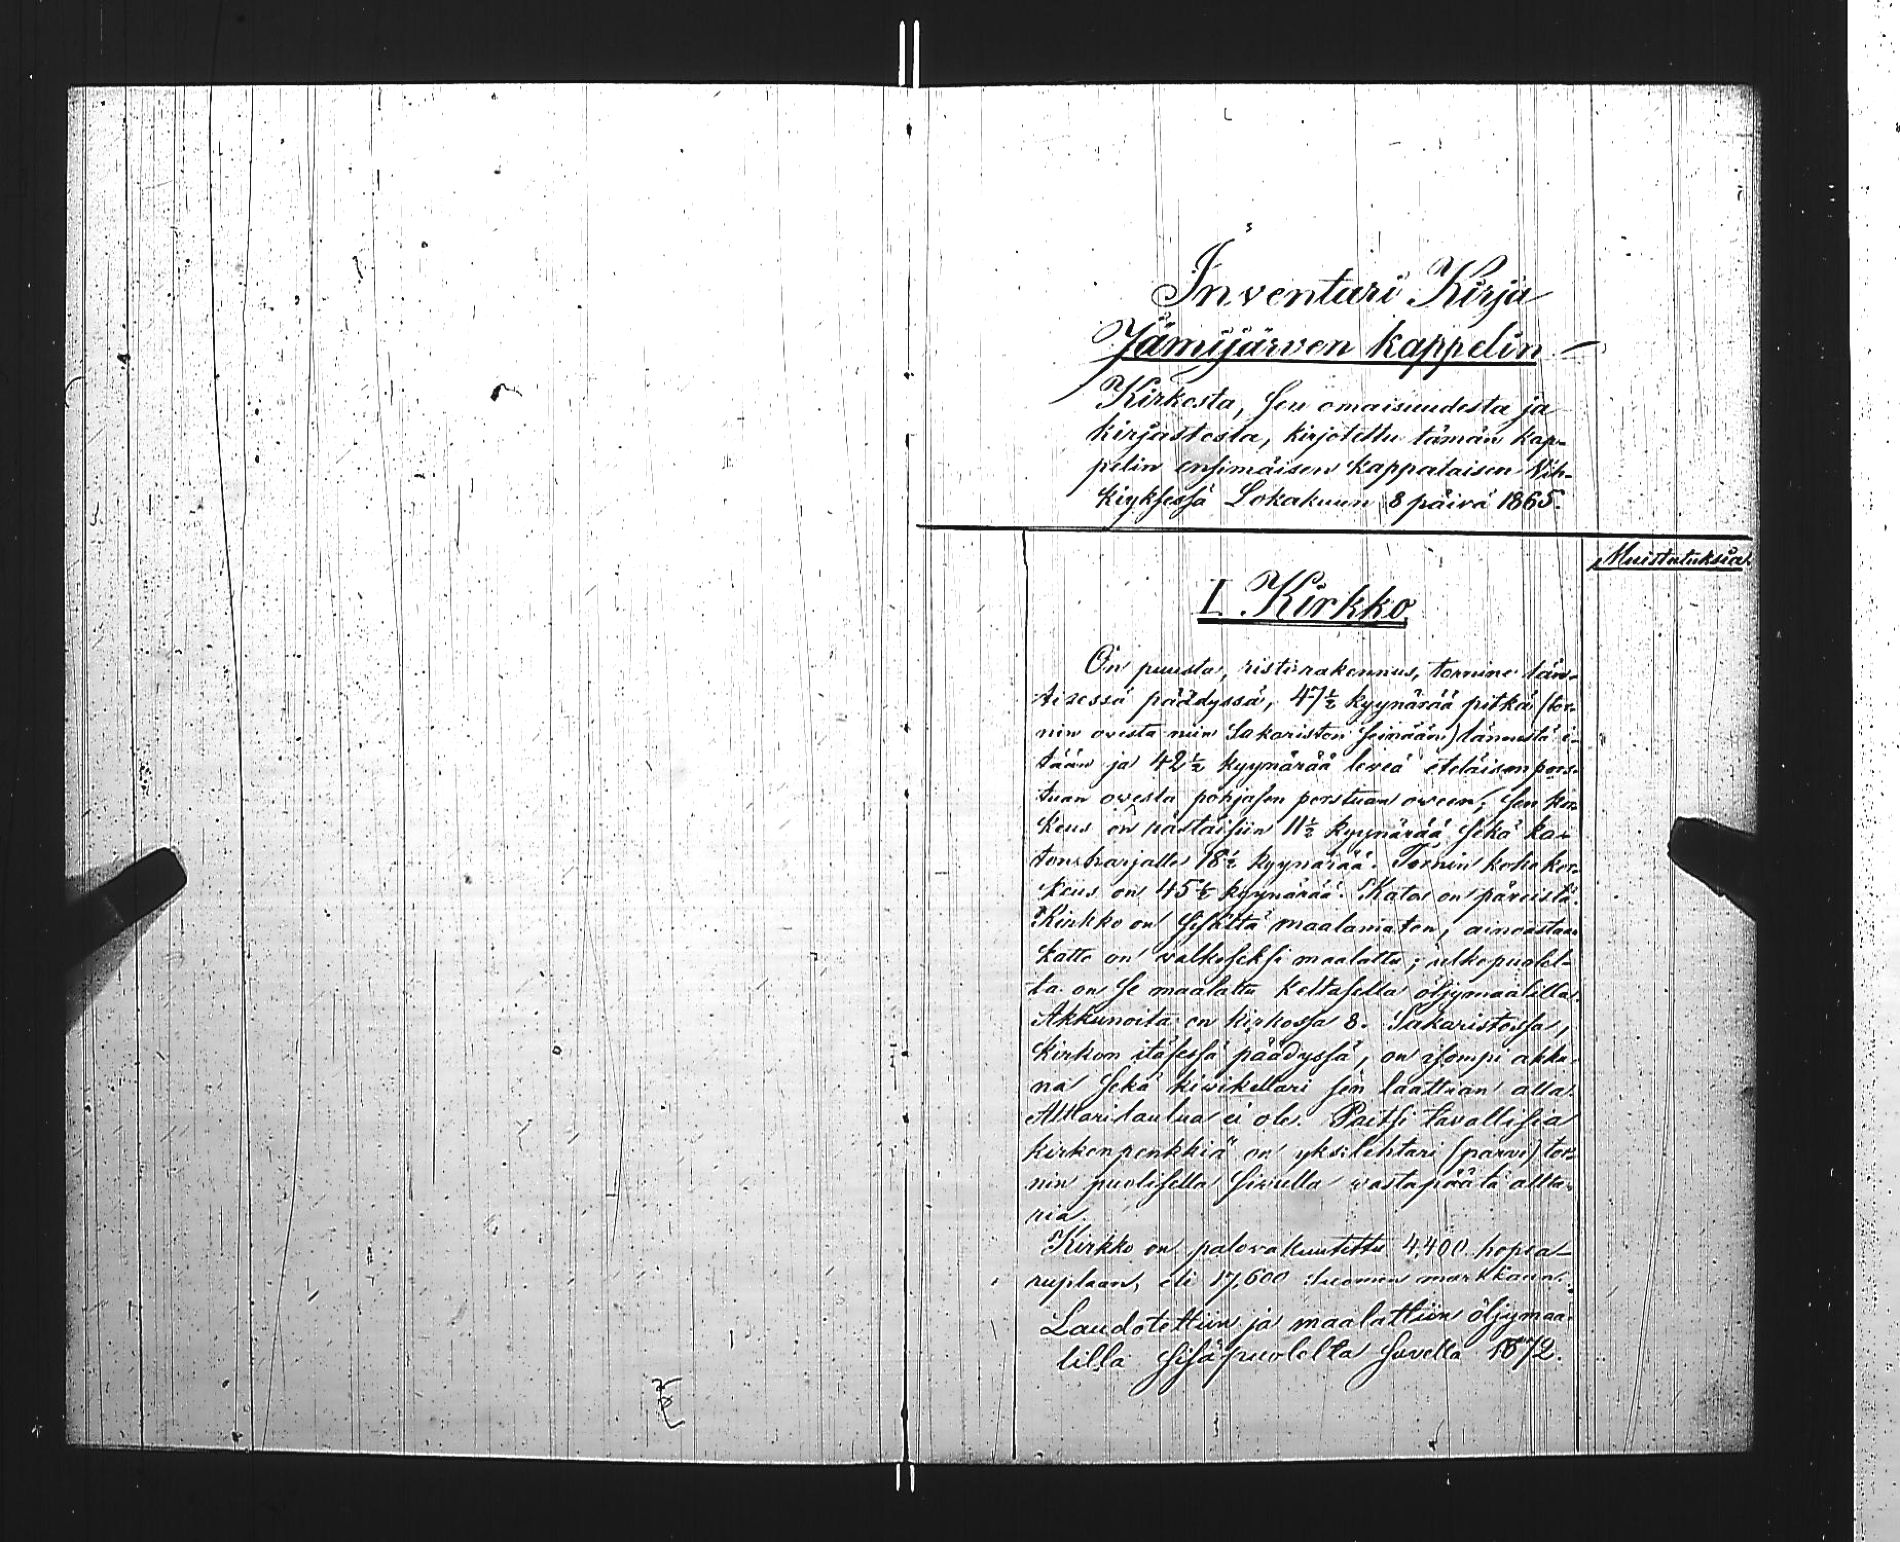 Inventari Kirja
Jämijärven kappelin
Kirkosta, sen omaisuudesta ja
kirjastosta, kirjotettu tämän kap-
pelin ensimäisen kappalaisen Vih-
kiyksessä Lokakuun 8 päivä 1865.
Muistutuksia.
I. Kirkko.
On puusta, ristirakennus, tornine län-
tisessä päädyssä, 47½ kyynärää pitkä (tor-
nin ovista niin Sakariston seinään) lännestä i-
tään ja 42½ kyynärää leveä eteläisen pors-
tuan ovesta pohjasen porstuan oveen; sen kor-
keus on räs­täisiin 11½ kyynärää sekä ka-
tonharjalle 18½ kyynärää. Tornin koko kor-
keus on 45½ kyynärää. Katos on päreistä.
Kirkko on sisältä maalamaton; ainoastaan
katto on valkoseksi maalattu; ulkopuolel-
ta on se maalattu keltasella öljymaalilla.
Akkunoita on kirkossa 8. Sakaristossa,
kirkon itäsessä päädyssä, on isompi akku-
na sekä kivikellari sen laattian alla.
Alttaritaulua ei ole. Paitsi tavallisia
kirkonpenkkiä on yksi lehtari (parvi) tor-
nin puolisella sivulla vastapäätä altta-
ria.
Kirkko on palovakuutettu 4,400 hopea-
ruplaan, eli 17,600 Suomen markkaan.
Laudotettiin ja maalattiin öljymaa-
lilla sisäpuolelta suvella 1872.